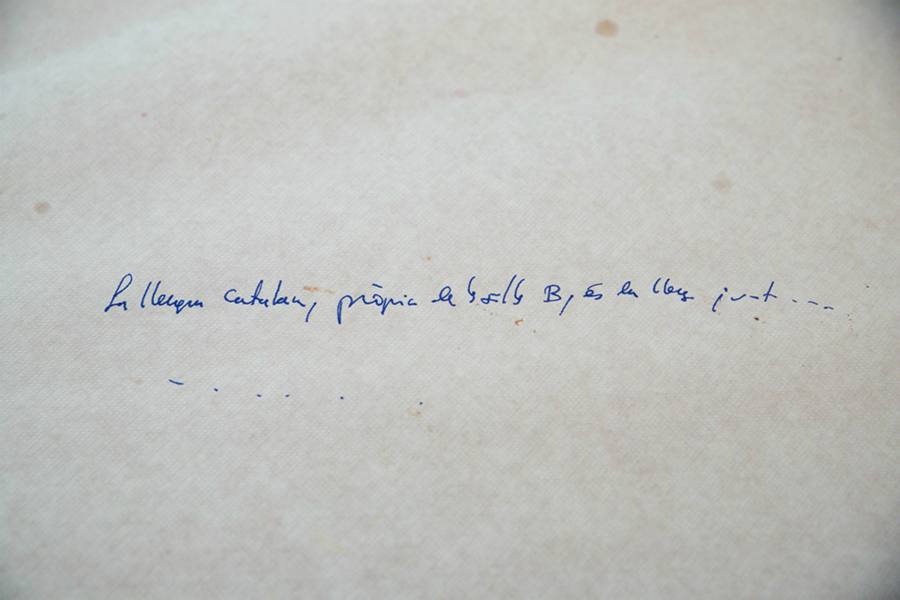 La llengua catalana, pròpia de les Illes B, és la lleng junt ....
- . . . . .